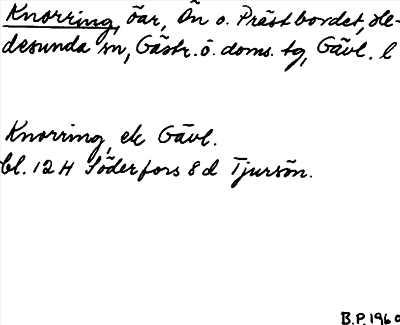 Knorring, öar, Ön o. Prästbordet, He-
desunda sn, Gästr. ö. doms. tg, Gävl. l
Knorring, ek Gävl.
bl. 12 H Söderfors 8 d Tjursön.
B.P. 1960